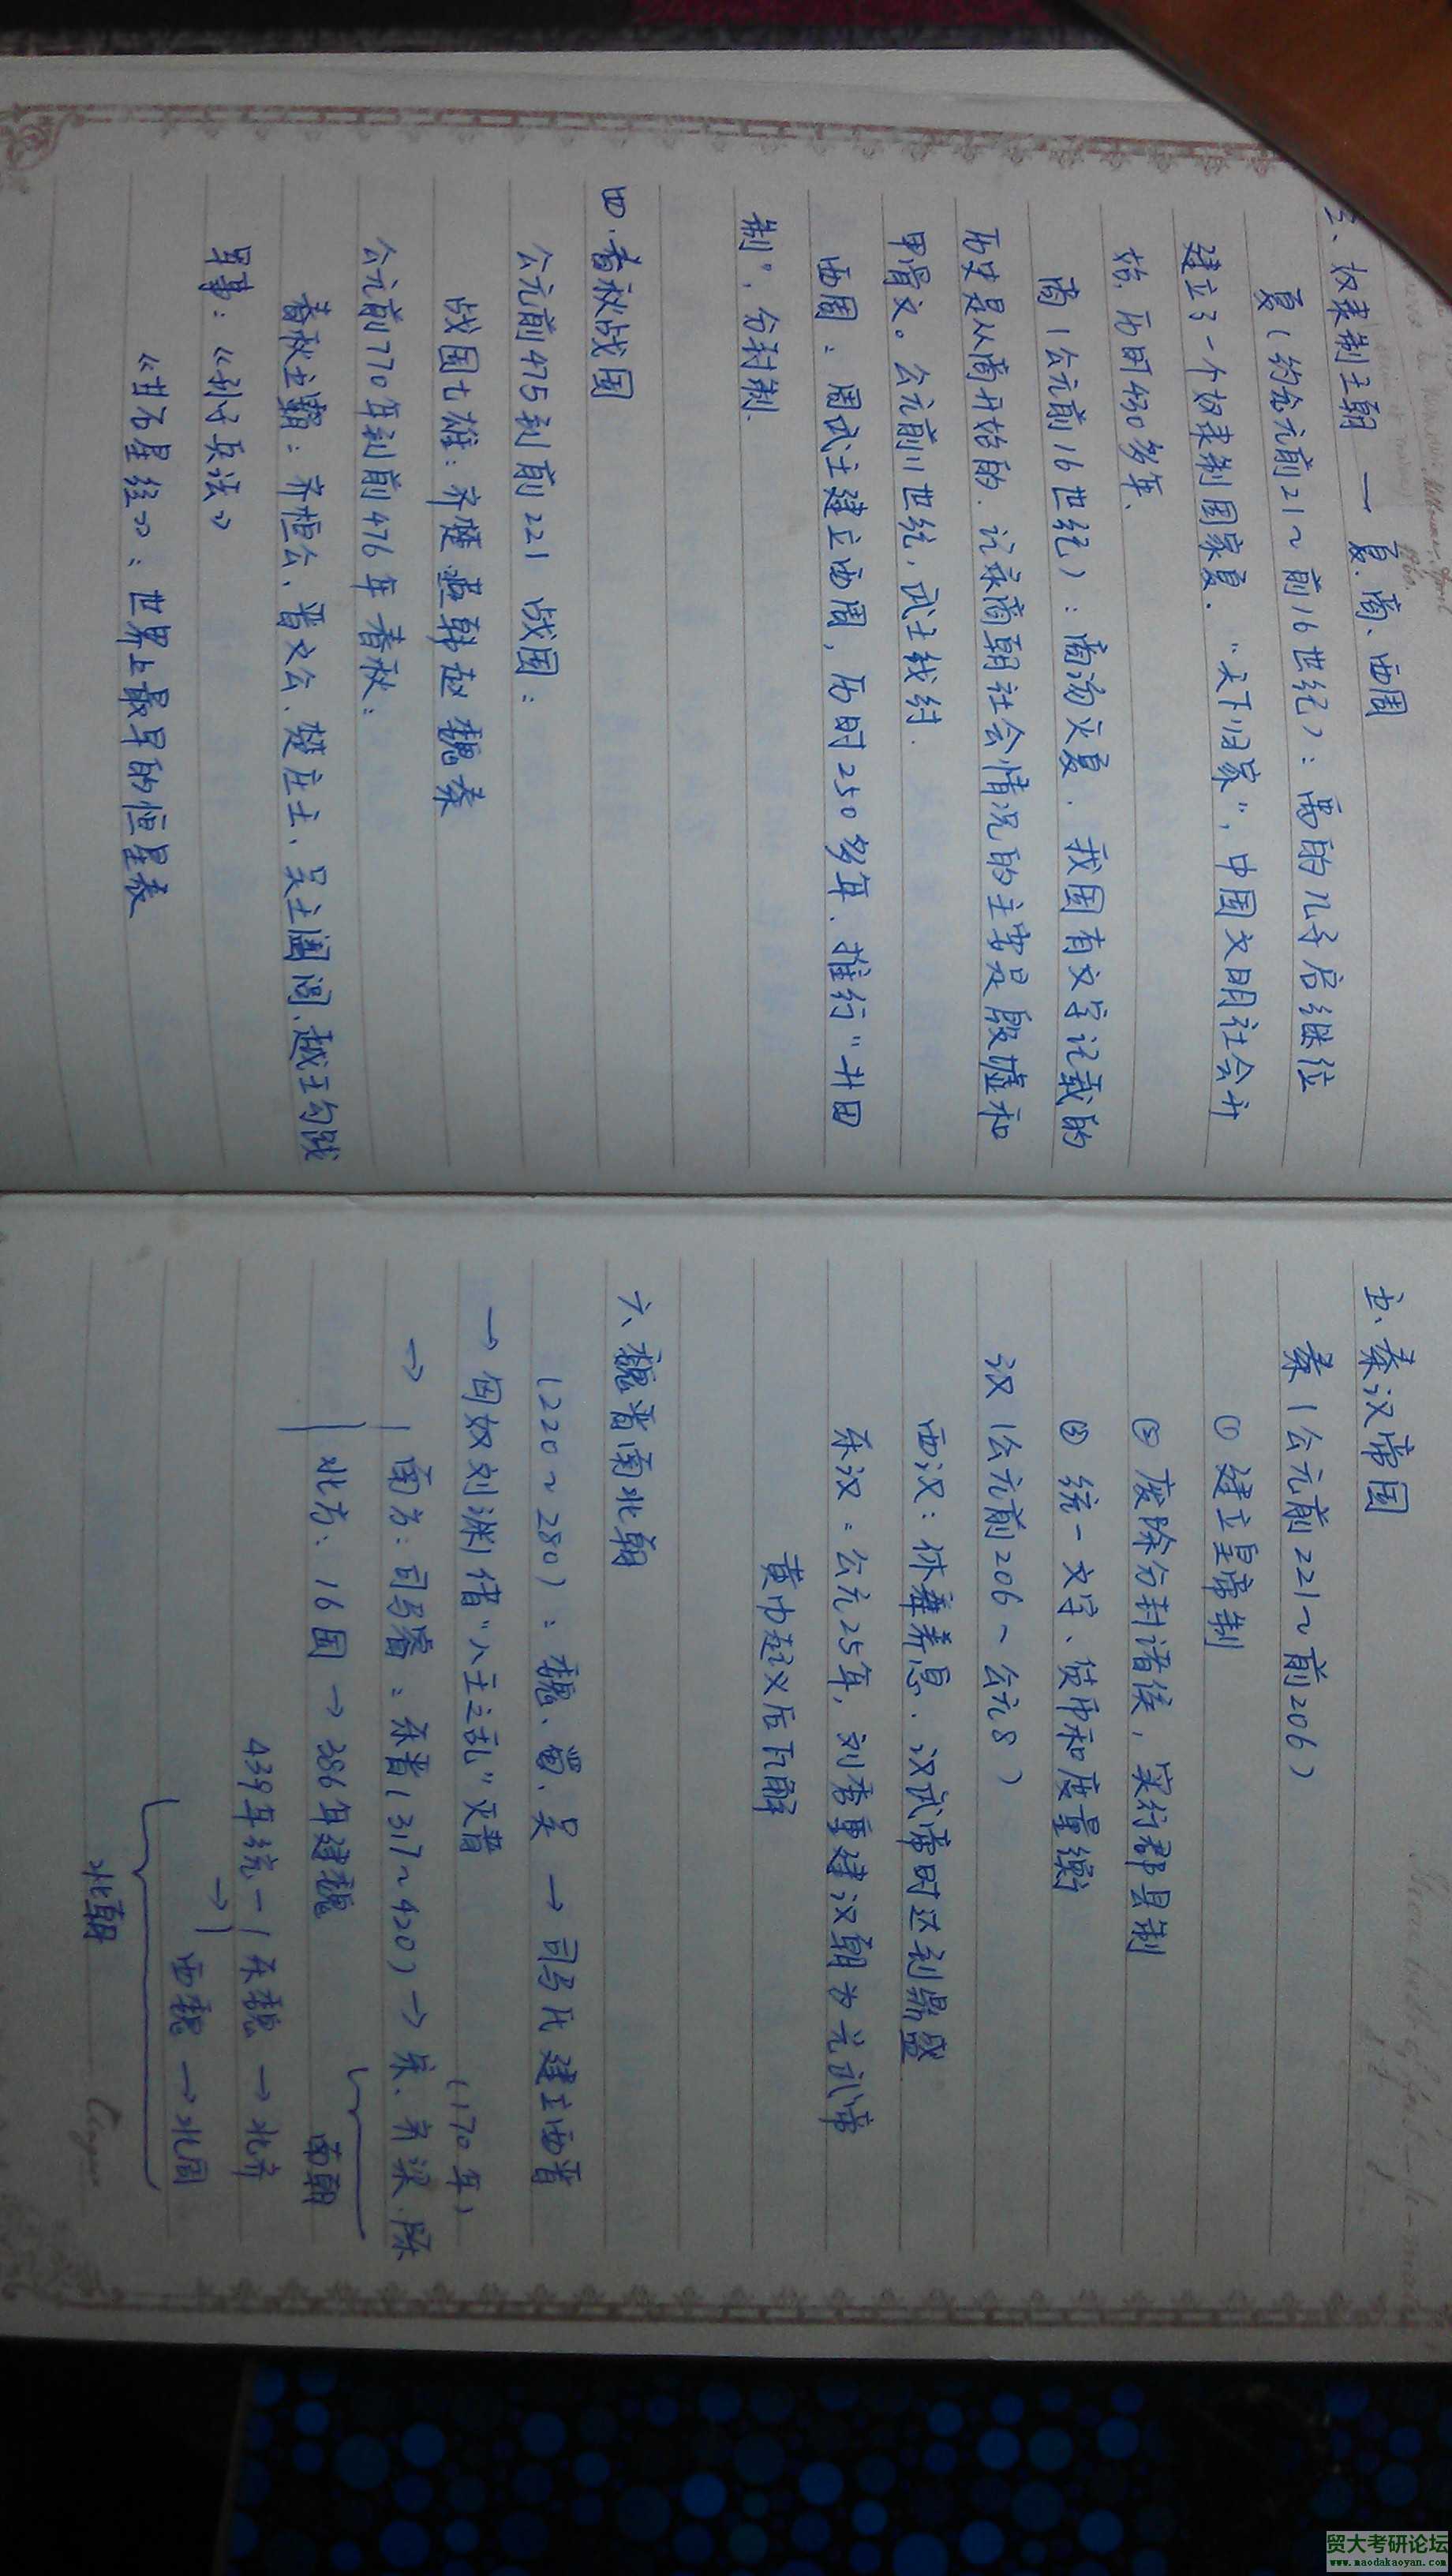 三、奴隶制王朝 — 夏、商、西周
夏(约公元前21~前16世纪):禹的儿子启继位
建立了一个奴隶制国家夏.“天下归家”,中国文明社会开
始.历时430多年.
商(公元前16世纪):商汤灭夏.我国有文字记载的
历史是从商开始的.记录商朝社会情况的主要是殷墟和
甲骨文。公元前11世纪,武王伐纣.
西周:周武王建立西周,历时250多年.推行“井田
制”,分封制.
四.春秋战国
公元前475到前221 战国:
战国七雄:齐楚燕韩赵魏秦
公元前770年到前476年春秋:
春秋五霸:齐桓公、晋文公、楚庄王、吴王阖闾、越王勾践
军事:《孙子兵法》
《甘石星经》:世界上最早的恒星表
五、秦汉帝国
秦(公元前221~前206)
① 建立皇帝制
② 废除分封诸侯,实行郡县制
③ 统一文字、货币和度量衡
汉(公元前206~公元8)
西汉:休养养息.汉武帝时达到鼎盛
东汉:公元25年,刘秀重建汉朝为光武帝
黄巾起义后瓦解
六、魏晋南北朝
(220~280):魏、蜀、吴 → 司马氏建立西晋
→ 匈奴刘渊借“八王之乱”灭晋
(170年)
→ 南方:司马睿:东晋(317~420)→ 宋、齐梁.陈
南朝
北方:16国 → 386年建魏
439年统一 东魏 → 北齐
→ 西魏 → 北周
北朝
贸大考研论坛
www.maodakaoyan.com